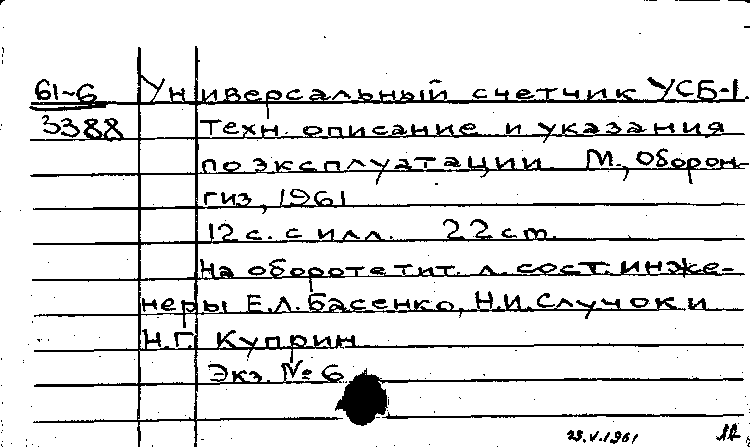 61-6 Универсальный счетчик УСБ-1.
3388 Техн. описание и указания
по эксплуатации М., Оборон-
гиз, 1961
12 с. с илл. 22 cm.
На обороте тит. л. сост. инже-
неры Е.Л. Басенко, Н.И. Случок и
Н.Г. Куприн
Экз. № 6
29.V.1961